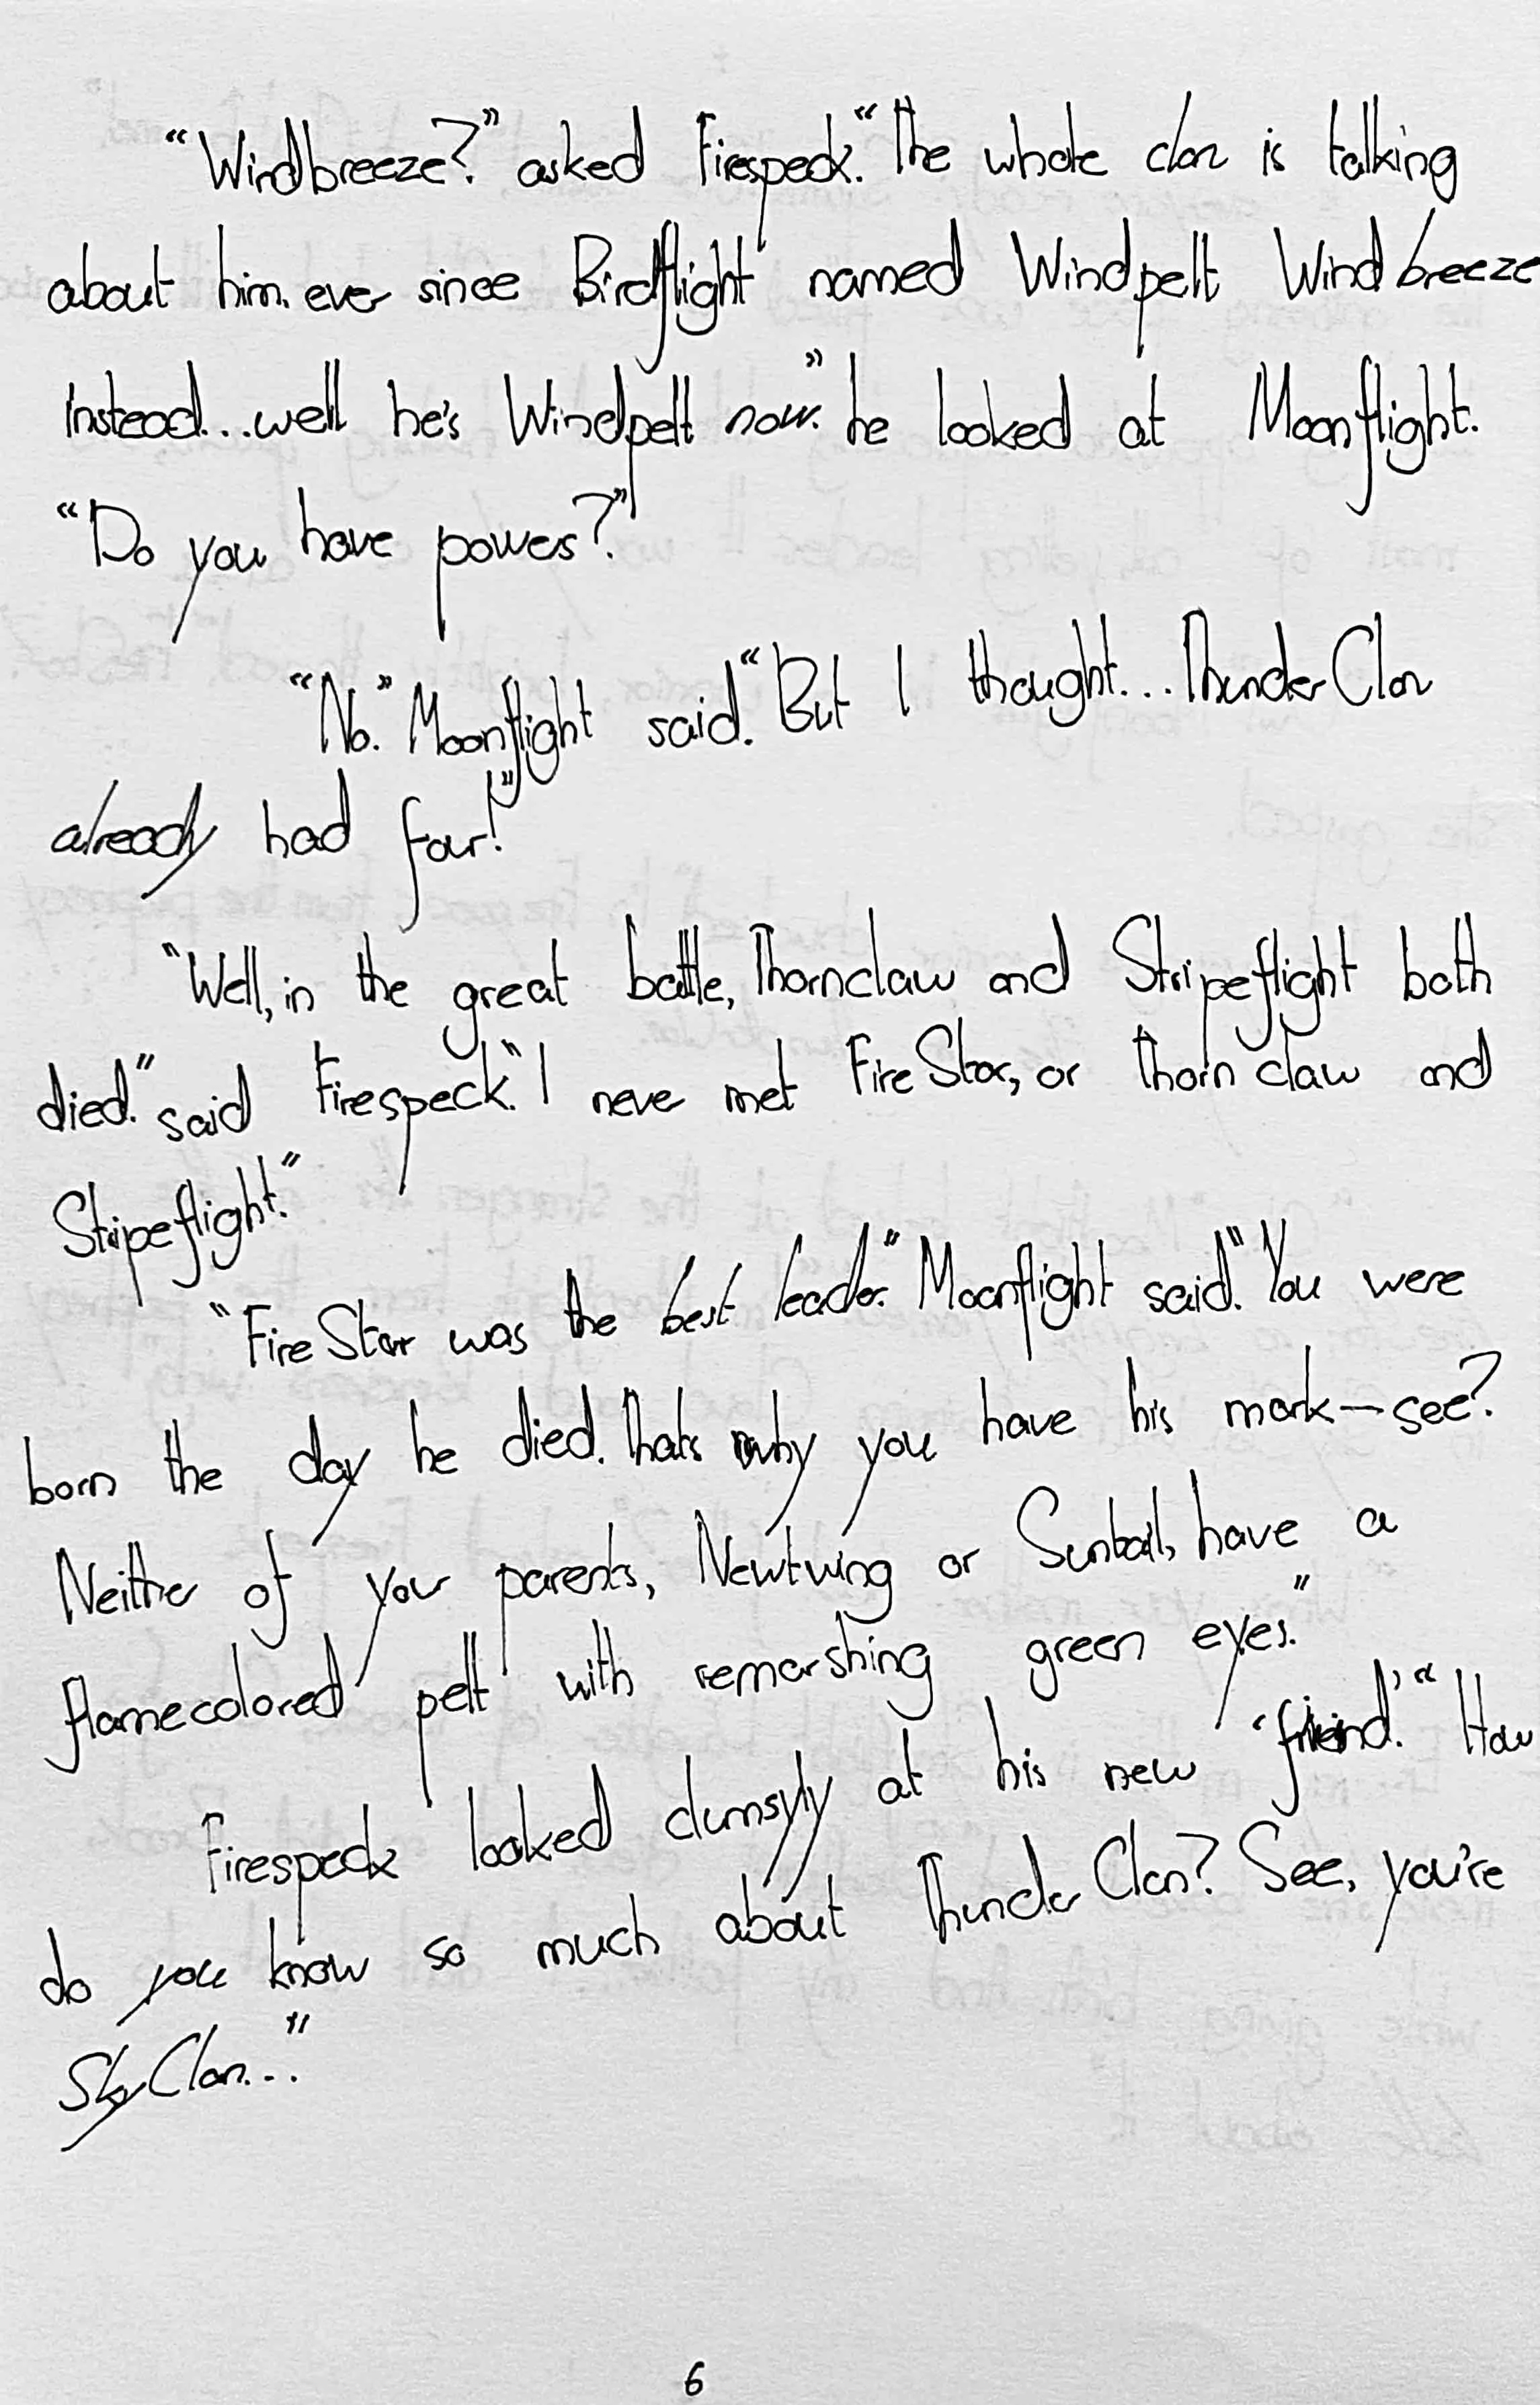 “Windbreeze?” asked Firespeck. “The whole clan is talking
about him. ever since Birdflight named Windpelt Windbreeze
instead...well he's Windpelt now.” he looked at Moonflight.
“Do you have powers?”
“No.” Moonflight said. “But I thought...ThunderClan
already had four!”
“Well, in the great battle, Thornclaw and Stripeflight both
died.” said Firespeck. “I never met FireStar, or Thornclaw and
Stripeflight.”
“FireStar was the best leader.” Moonflight said. “You were
born the day he died. Thats why you have his mark—see?
Neither of your parents, Newtwing or Suntail, have a
flamecolored pelt with remarshing green eyes.”
Firespeck looked clumsyly at his new ‘friend.’ “How
do you know so much about ThunderClan? See, you're
SkyClan...”
6